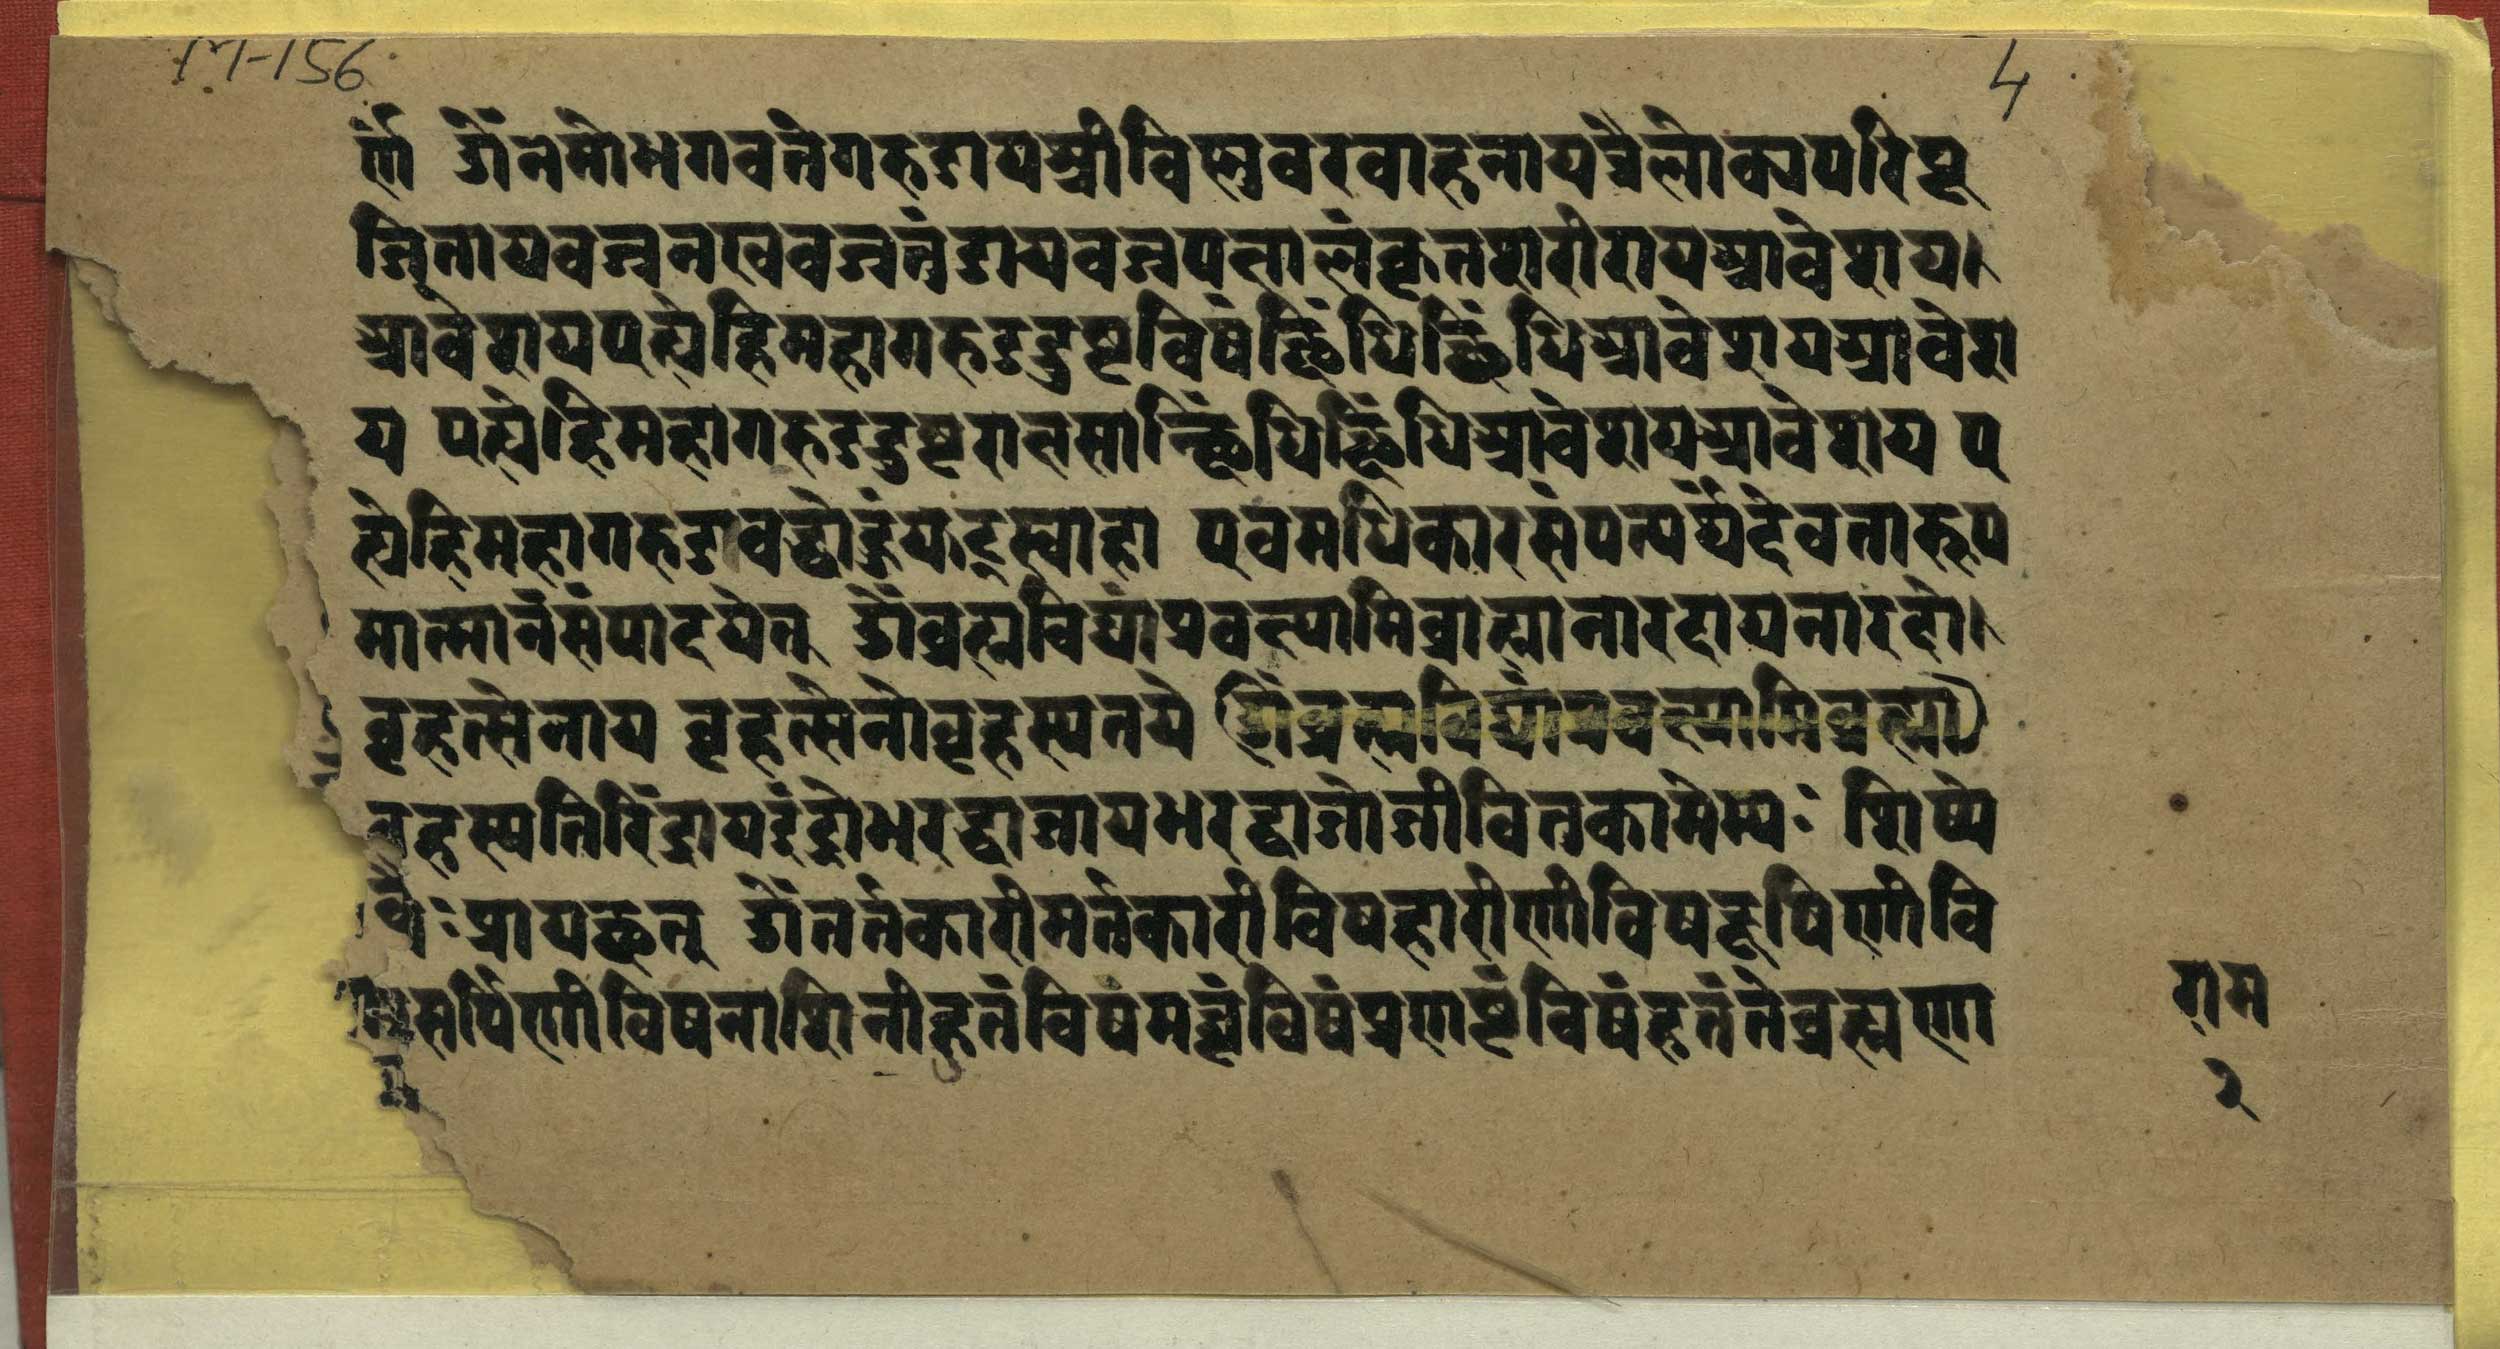 M-156
4
र्ण ॐ नमो भगवते गरुडाय श्रीविष्णुवरवाहनाय त्रैलोक्यपरिपू
जिताय वज्रनखवज्रतुंडाय वज्रपक्षालंकृतशरीराय आवेशाय।
आवेशाय एह्येहि महागरुड दुष्टविषं छिंधि छिंधि आवेशाय आवेशा
य एह्येहि महागरुड दुष्टराक्षसान् छिंधि छिंधि आवेशाय आवेशाय ए
ह्येहि महागरुडाव हुं फट् स्वाहा एवमधिकारसंपन्न देवतारूप
मात्मानं संपादयेत् ॐ ब्रह्मविद्यां प्रवक्ष्यामि ब्राह्मा नारदाय नारदो।
बृहत्सेनाय बृहत्सेनो बृहस्पतये (ॐ ब्रह्मविद्यां प्रवक्ष्यामि ब्रह्मा)
बृहस्पतिरिंद्राय इंद्रो भरद्वाजाय भरद्वाजो जीवितुकामेभ्यः शिष्ये
भ्यः प्रायछत् ॐ तर्तकारी मर्तकारी विषहारीणी विषदूषिणी वि
सर्पिणी विषनाशिनी हतं विषं विषं प्रणष्टं विषं हतं ते ब्रह्मणा
राम
२